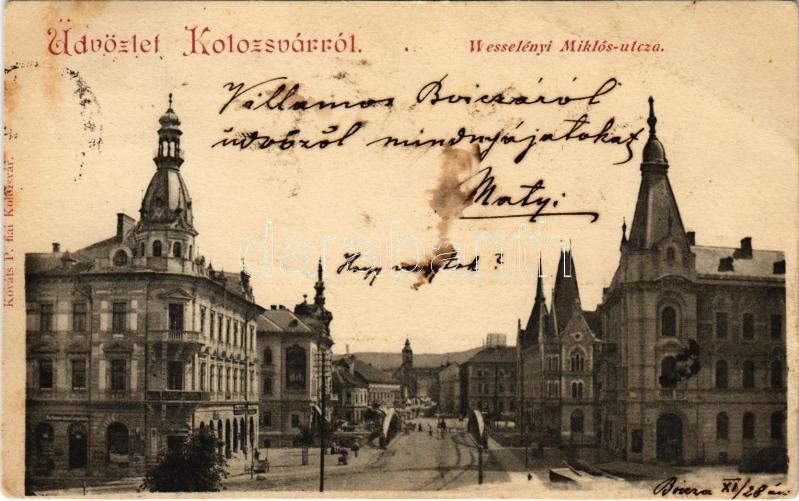 Üdvözlet Kolozsvárról.
Wesselényi Miklós-utcza.
Villamos Bviczáról
üdvözöl mindnyájatokat
Matyi
darabanth.com
Hogy vagytok?
Kováts P. fiai Kolozsvár.
XI/28 án